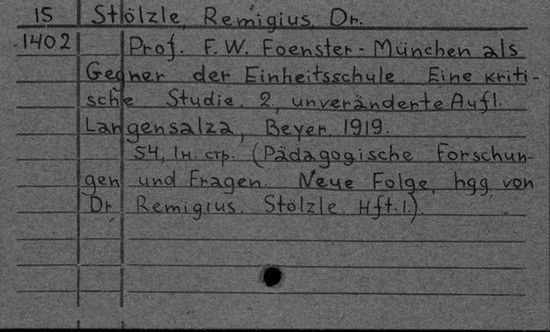 15 Stölzle, Remigius, Dr.
1402 Prof. F. W. Foenster-München als
Gegner der Einheitsschule. Eine kriti-
sche Studie. 2, unveränderte Aufl.
Langensalza, Beyer. 1919.
54, 1н. стр. (Pädagogische Forschun-
gen und Fragen. Neue Folge, hgg von
Dr Remigius. Stölzle. Hft. 1.)